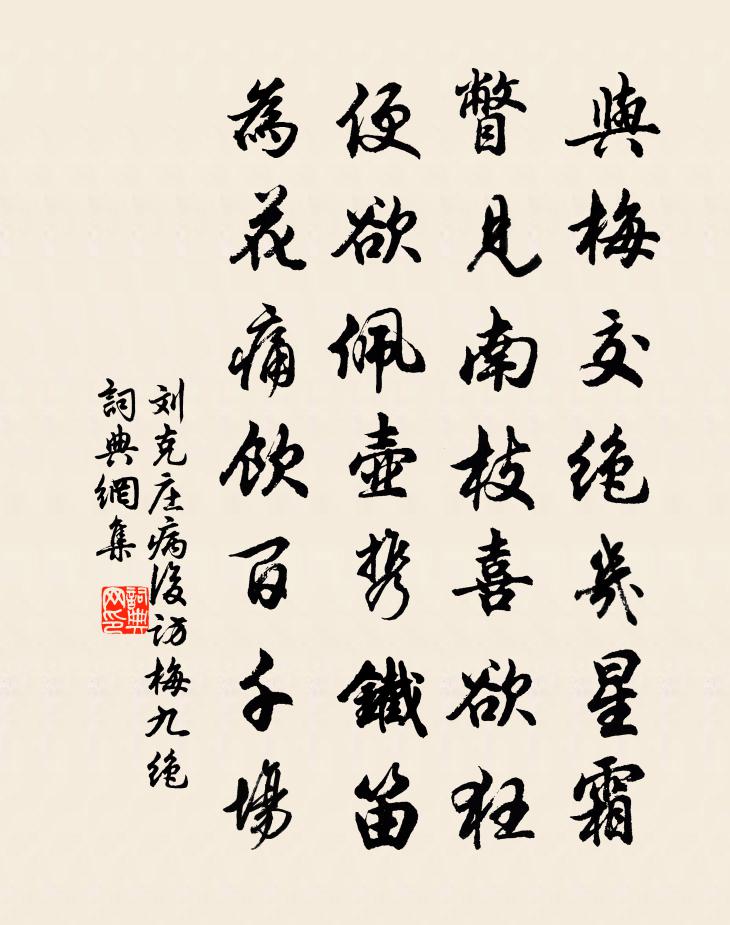 與梅交絶幾星霜
瞥見南枝喜欲狂
便欲佩壺攜鐵笛
為花痛飲百千場
刘克庄病後访梅九绝
詞典網集
詞典网印